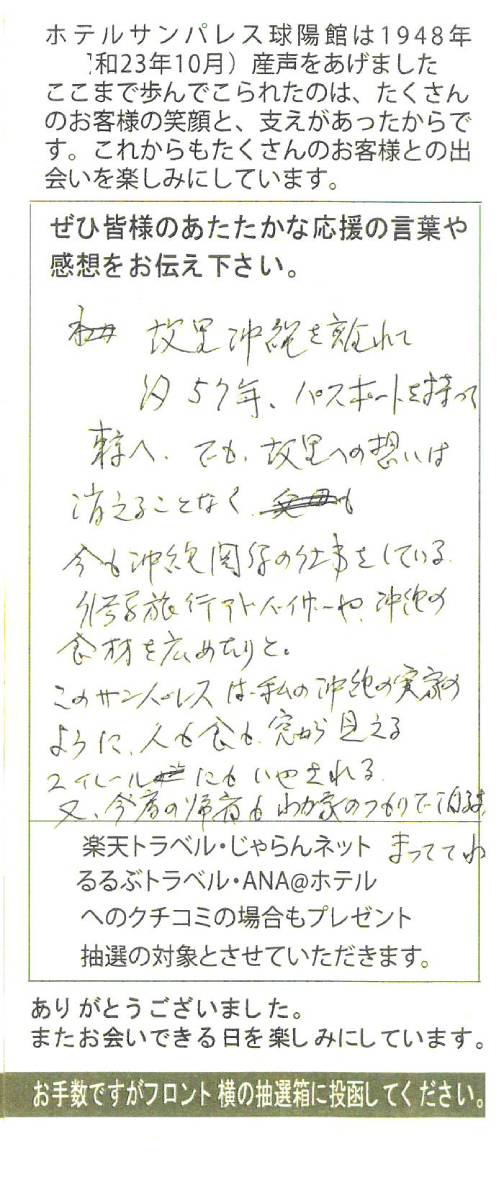 ホテルサンパレス球陽館は1948年
和23年10月）産声をあげました
ここまで歩んでこられたのは、たくさん
のお客様の笑顔と、支えがあったからで
す。これからもたくさんのお客様との出
会いを楽しみにしています。
ぜひ皆様のあたたかな応援の言葉や
感想をお伝え下さい。
故里沖縄を離れて
約57年、パスポートを持って
東京へ. でも、故里への想いは
消えることなく、も
今も沖縄関係の仕事をしている.
旅行アドバイザーや、沖縄の
食材を広めたりと。
このサンパレスは私の沖縄の実家の
ように、人も食も、窓から見える
にもいやされる.
又、今度の帰省もわが家のつもりで泊
まっててね
楽天トラベル・じゃらんネット
るるぶトラベル・ANA@ホテル
へのクチコミの場合もプレゼント
抽選の対象とさせていただきます。
ありがとうございました。
またお会いできる日を楽しみにしています。
お手数ですがフロント横の抽選箱に投函してください。